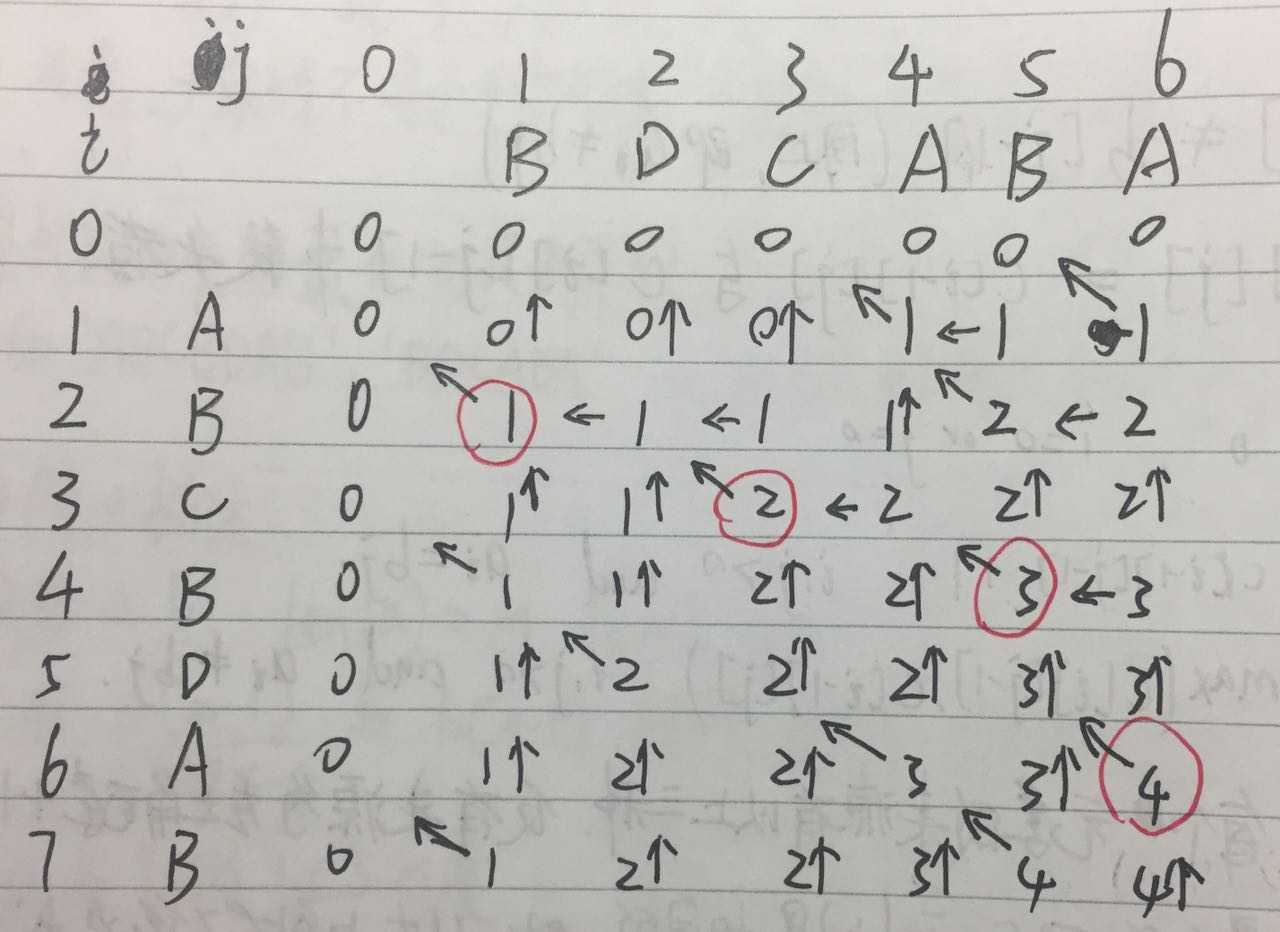 i j 0 1 2 3 4 5 6
i B D C A B A
0 0 0 0 0 0 0 0
1 A 0 0↑ 0↑ 0↑ ↖1 ←1 ↖1
2 B 0 ↖1 ←1 ←1 1↑ ↖2 ←2
3 C 0 1↑ 1↑ ↖2 ←2 2↑ 2↑
4 B 0 ↖1 1↑ 2↑ 2↑ ↖3 ←3
5 D 0 1↑ ↖2 2↑ 2↑ 3↑ 3↑
6 A 0 1↑ 2↑ 2↑ ↖3 3↑ ↖4
7 B 0 ↖1 2↑ 2↑ 3↑ ↖4 4↑